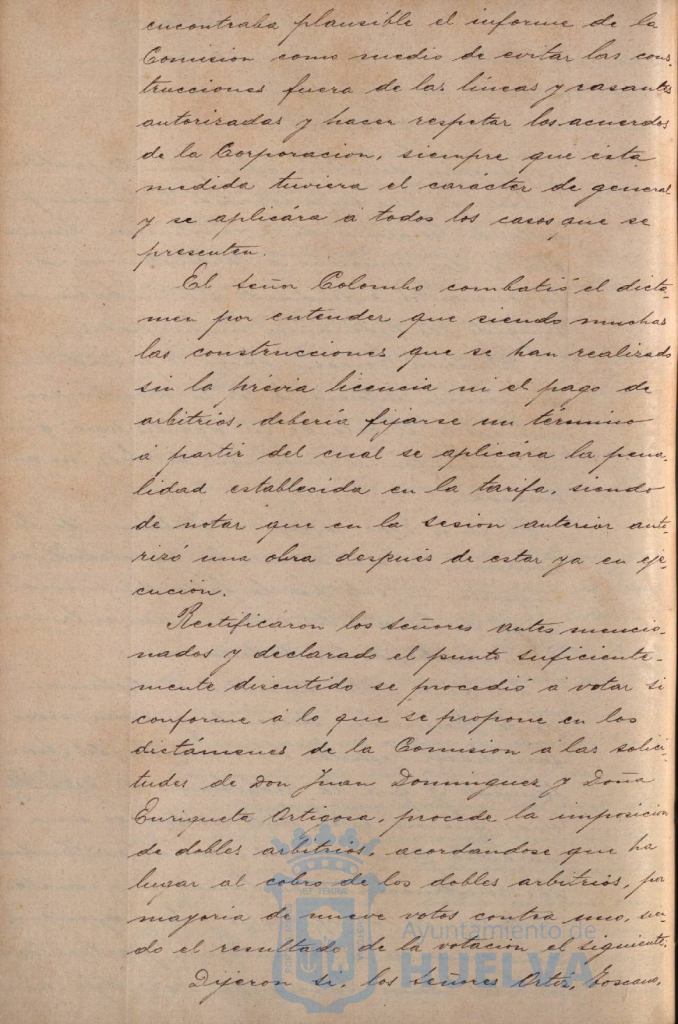 encontraba plausible el informe de la
Comision como medio de evitar las cons-
trucciones fuera de las líneas y rasantes
autorizadas y hacer respetar los acuerdos
de la Corporacion, siempre que esta
medida tuviera el carácter de general
y se aplicára á todos los casos que se
presenten.
El señor Colombo combatió el dicta-
men por entender que siendo muchas
las construcciones que se han realizado
sin la prévia licencia ni el pago de
arbitrios, debería fijarse un término
á partir del cual se aplicára la pena-
lidad establecida en la tarifa, siendo
de notar que en la sesion anterior auto-
rizó una obra después de estar ya en eje-
cución.
Rectificaron los señores antes mencio-
nados y declarado el punto suficiente-
mente discutido se procedió á votar si
conforme á lo que se propone en los
dictámenes de la Comision á las solici-
tudes de Don Juan Dominguez y Doña
Enriqueta Ortigosa, procede la imposicion
de dobles arbitrios, acordándose que ha
lugar al cobro de los dobles arbitrios, por
mayoria de nueve votos contra uno, sien-
do el resultado de la votacion el siguiente.
Dijeron si, los señores Ortiz, Toscano,
Ayuntamiento de
HUELVA